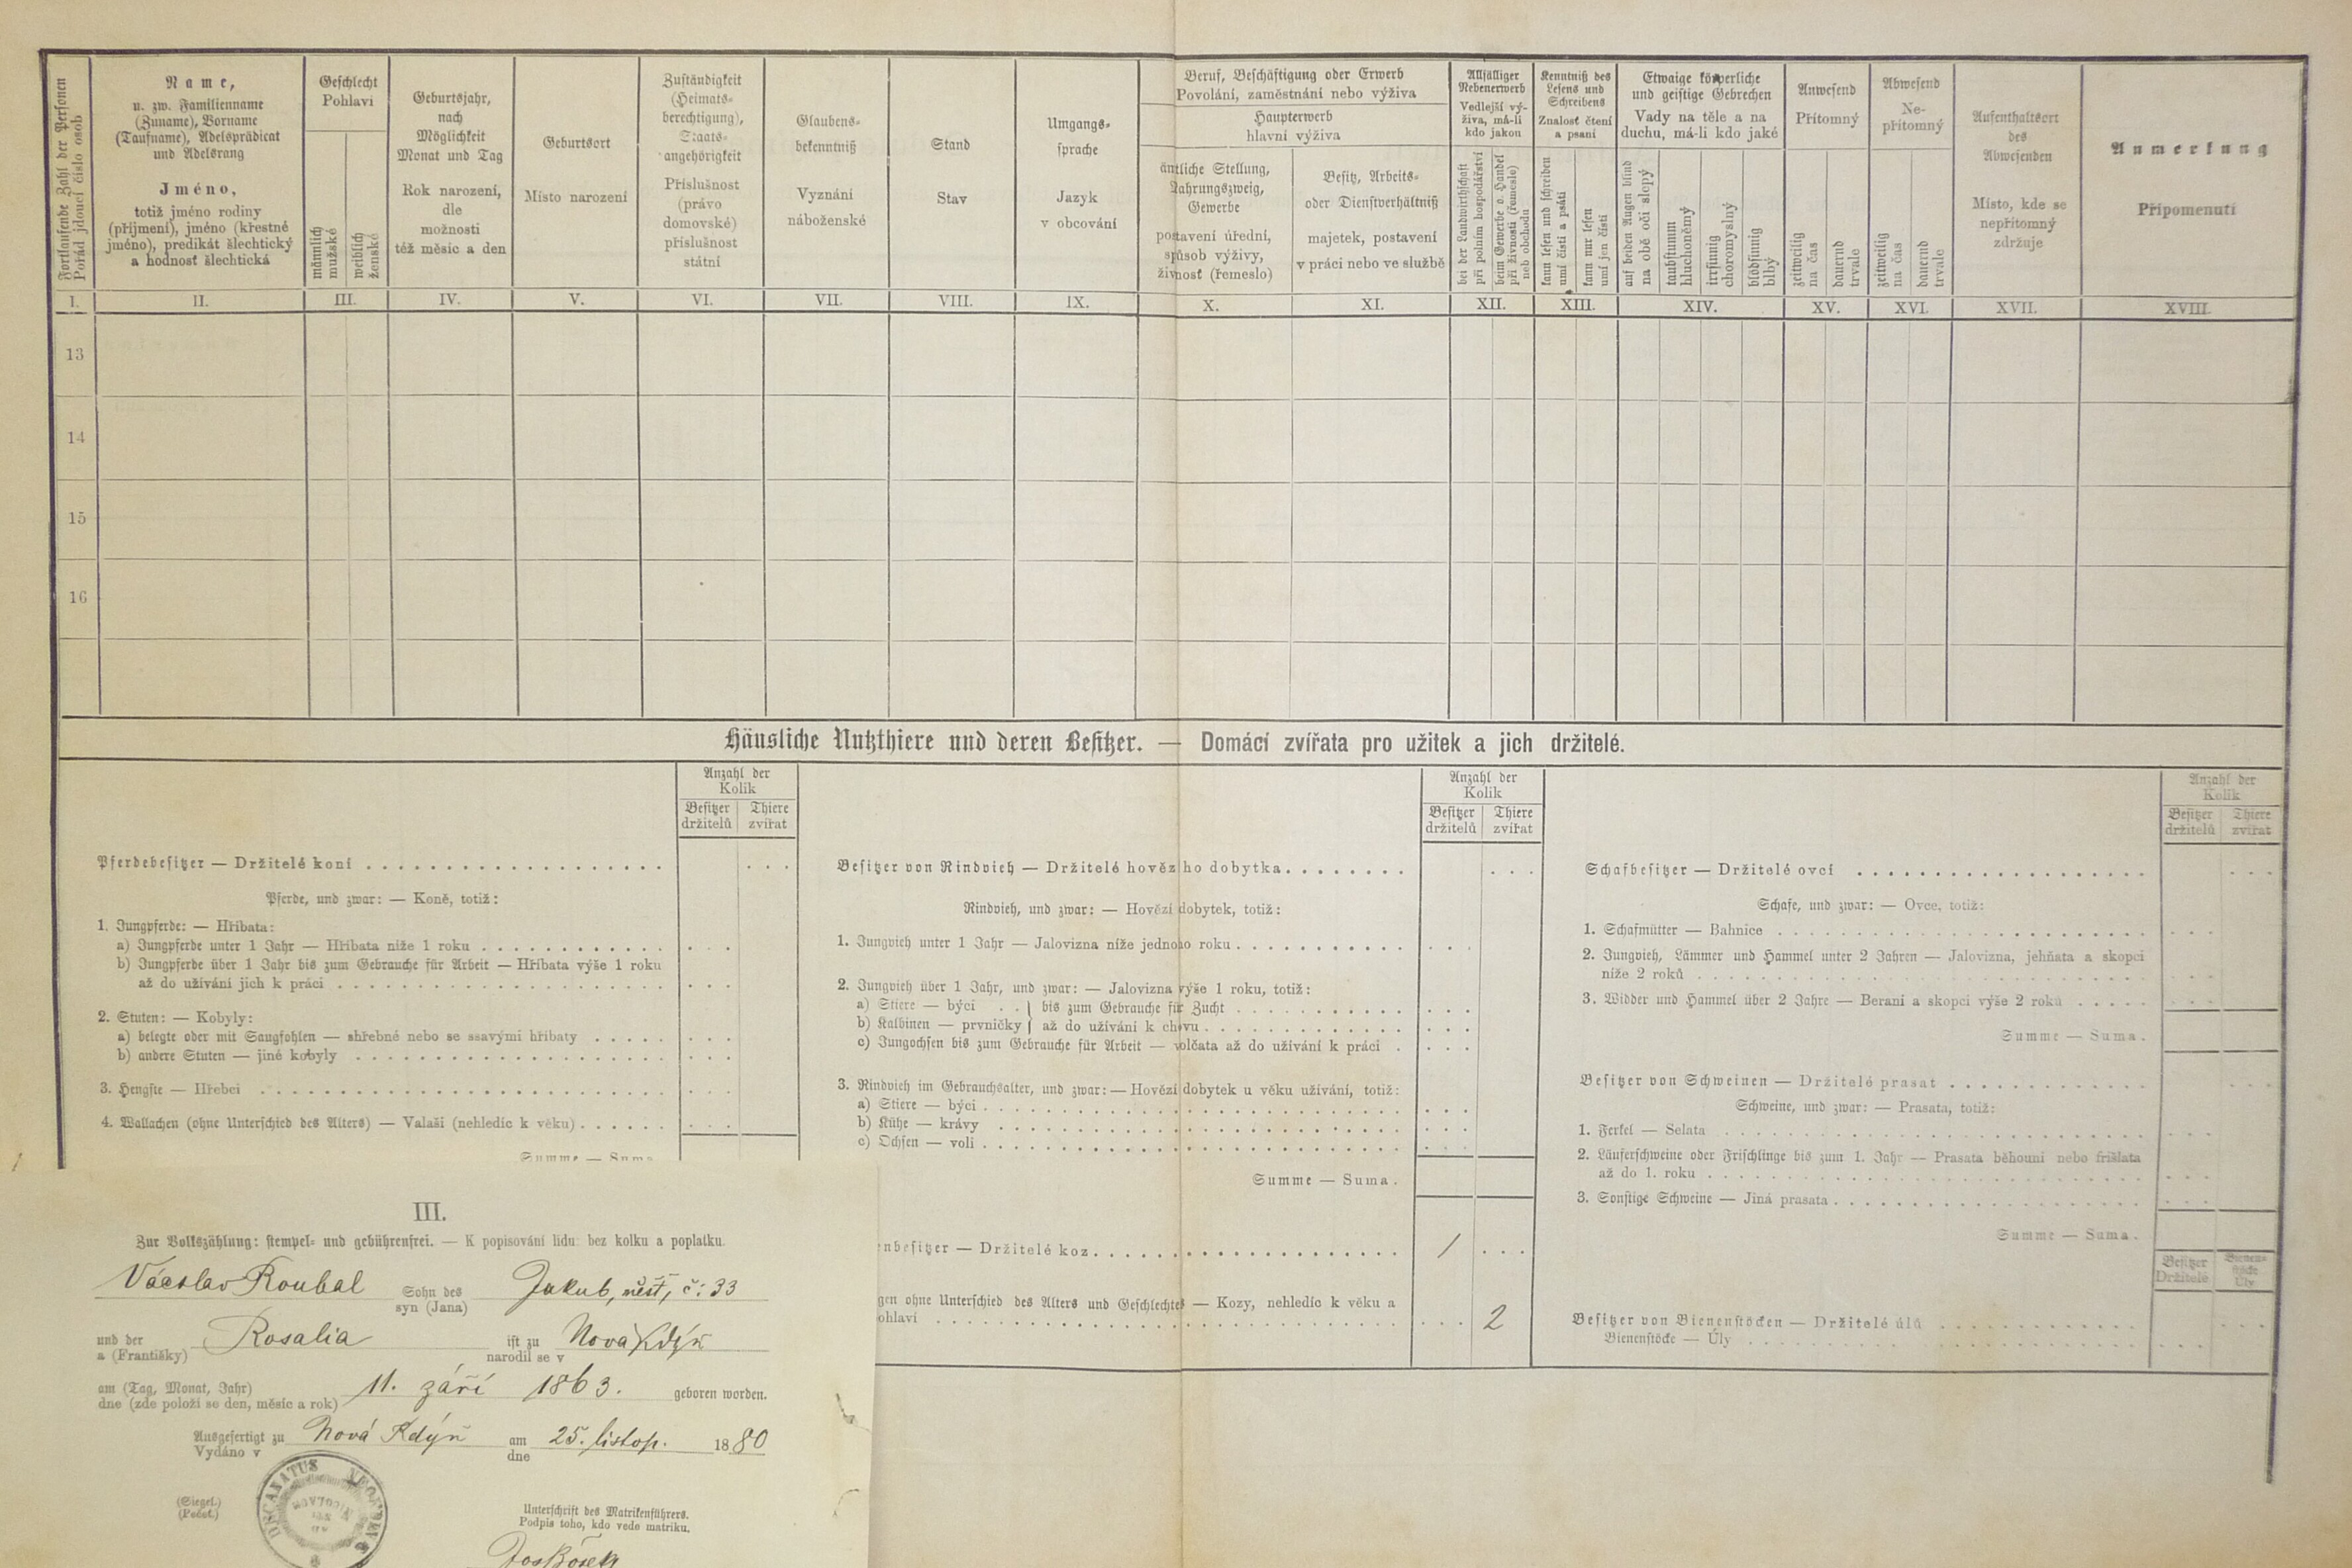 Fortlaufende Zahl der Personen
Pořád jdoucí číslo osob
Name,
u. zw. Familienname
(Zuname), Vorname
(Taufname), Adelsprädicat
und Adelsrang
Jméno,
totiž jméno rodiny
(příjmení), jméno (křestné
jméno), predikát šlechtický
a hodnosť šlechtická
Geschlecht
Pohlaví
männlich
mužské
weiblich
ženské
Geburtsjahr,
nach
Möglichkeit
Monat und Tag
Rok narození,
dle
možnosti
též měsíc a den
Geburtsort
Místo narození
Zuständigkeit
(Heimats-
berechtigung),
Staats-
angehörigkeit
Příslušnost
(právo
domovské)
příslušnost
státní
Glaubens-
bekenntniß
Vyznání
náboženské
Stand
Stav
Umgangs-
sprache
Jazyk
v obcování
Beruf, Beschäftigung oder Erwerb
Povolání, zaměstnání nebo výživa
Haupterwerb
hlavní výživa
ämtliche Stellung,
Nahrungszweig,
Gewerbe
postavení úřední,
spůsob výživy,
živnosť (řemeslo)
Besitz, Arbeits-
oder Dienstverhältniß
majetek, postavení
v práci nebo ve službě
Allfälliger
Nebenerwerb
Vedlejší vý-
živa, má-li
kdo jakou
bei der Landwirthschaft
při polním hospodářství
beim Gewerbe o. Handel
při živnosti (řemesle)
neb obchodu
Kenntniß des
Lesens und
Schreibens
Znalost čtení
a psaní
kann lesen und schreiben
umí čísti a psáti
kann nur lesen
umí jen čísti
Etwaige körperliche
und geistige Gebrechen
Vady na těle a na
duchu, má-li kdo jaké
auf beiden Augen blind
na obě oči slepý
taubstumm
hluchoněmý
irrsinnig
choromyslný
blödsinnig
blbý
Anwesend
Přítomný
zeitweilig
na čas
dauernd
trvale
Abwesend
Ne-
přítomný
zeitweilig
na čas
dauernd
trvale
Aufenthaltsort
des
Abwesenden
Místo, kde se
nepřítomný
zdržuje
Anmerkung
Připomenutí
I. II. III. IV. V. VI. VII. VIII. IX. X. XI. XII. XIII. XIV. XV. XVI. XVII. XVIII.
13
14
15
16
Häusliche Nutzthiere und deren Besitzer. — Domácí zvířata pro užitek a jich držitelé.
Anzahl der
Kolik
Besitzer Thiere
držitelů zvířat
Pferdebesitzer — Držitelé koní
Pferde, und zwar: — Koně, totiž:
1. Jungpferde: — Hříbata:
a) Jungpferde unter 1 Jahr — Hříbata níže 1 roku
b) Jungpferde über 1 Jahr bis zum Gebrauche für Arbeit — Hříbata výše 1 roku
až do užívání jich k práci
2. Stuten: — Kobyly:
a) belegte oder mit Saugfohlen — shřebné nebo se ssavými hříbaty
b) andere Stuten — jiné kobyly
3. Hengste — Hřebci
4. Wallachen (ohne Unterschied des Alters) — Valaši (nehledíc k věku)
Summe — Suma
Anzahl der
Kolik
Besitzer Thiere
držitelů zvířat
Besitzer von Rindvieh — Držitelé hovězího dobytka
Rindvieh, und zwar: — Hovězí dobytek, totiž:
1. Jungvieh unter 1 Jahr — Jalovizna níže jednoho roku
2. Jungvieh über 1 Jahr, und zwar: — Jalovizna výše 1 roku, totiž:
a) Stiere — býci . . } bis zum Gebrauche für Zucht
b) Kalbinen — prvničky } až do užívání k chovu
c) Jungochsen bis zum Gebrauche für Arbeit — volčata až do užívání k práci
3. Rindvieh im Gebrauchsalter, und zwar: — Hovězí dobytek u věku užívání, totiž:
a) Stiere — býci
b) Kühe — krávy
c) Ochsen — voli
Summe — Suma.
nbesitzer — Držitelé koz 1
gen ohne Unterschied des Alters und Geschlechtes — Kozy, nehledíc k věku a
ohlaví 2
Anzahl der
Kolik
Besitzer Thiere
držitelů zvířat
Schafbesitzer — Držitelé ovcí
Schafe, und zwar: — Ovce, totiž:
1. Schafmütter — Bahnice
2. Jungvieh, Lämmer und Hammel unter 2 Jahren — Jalovizna, jehňata a skopci
níže 2 roků
3. Widder und Hammel über 2 Jahre — Berani a skopci výše 2 roků
Summe — Suma.
Besitzer von Schweinen — Držitelé prasat
Schweine, und zwar: — Prasata, totiž:
1. Ferkel — Selata
2. Läuferschweine oder Frischlinge bis zum 1. Jahr — Prasata běhouni nebo frišlata
až do 1. roku
3. Sonstige Schweine — Jiná prasata
Summe — Suma.
Besitzer Bienen-
Držitelé stöcke
Úly
Besitzer von Bienenstöcken — Držitelé úlů
Bienenstöcke — Úly
III.
Zur Volkszählung: stempel- und gebührenfrei. — K popisování lidu: bez kolku a poplatku.
Václav Roubal Sohn des Jakub, měšť, č: 33
syn (Jana)
und der Rosalia ist zu Nová Kdýň
a (Františky) narodil se v
am (Tag, Monat, Jahr) 11. září 1863. geboren worden.
dne (zde položí se den, měsíc a rok)
Ausgefertigt zu Nová Kdýň am 25. listop. 1880
Vydáno v dne
(Siegel.)
(Pečeť.)
DECANATUS
Unterschrift des Matrikenführers.
Podpis toho, kdo vede matriku.